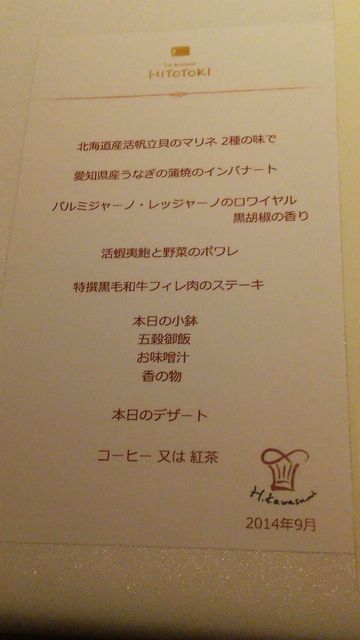 La maison
HITOTOKI
北海道産活帆立貝のマリネ 2種の味で
愛知県産うなぎの蒲焼のインパナート
パルミジャーノ・レッジャーノのロワイヤル
黒胡椒の香り
活蝦夷鮑と野菜のポワレ
特撰黒毛和牛フィレ肉のステーキ
本日の小鉢
五穀御飯
お味噌汁
香の物
本日のデザート
コーヒー 又は 紅茶
2014年9月